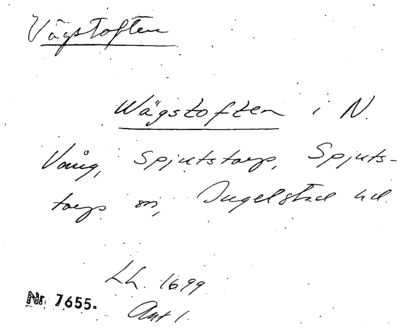 Vägstoften
Wägstoften i N.
Vång, Spjutstorp, Spjuts-
torps sn, Ingelstad hd.
LL. 1699
Akt 1.
Nr 7655.